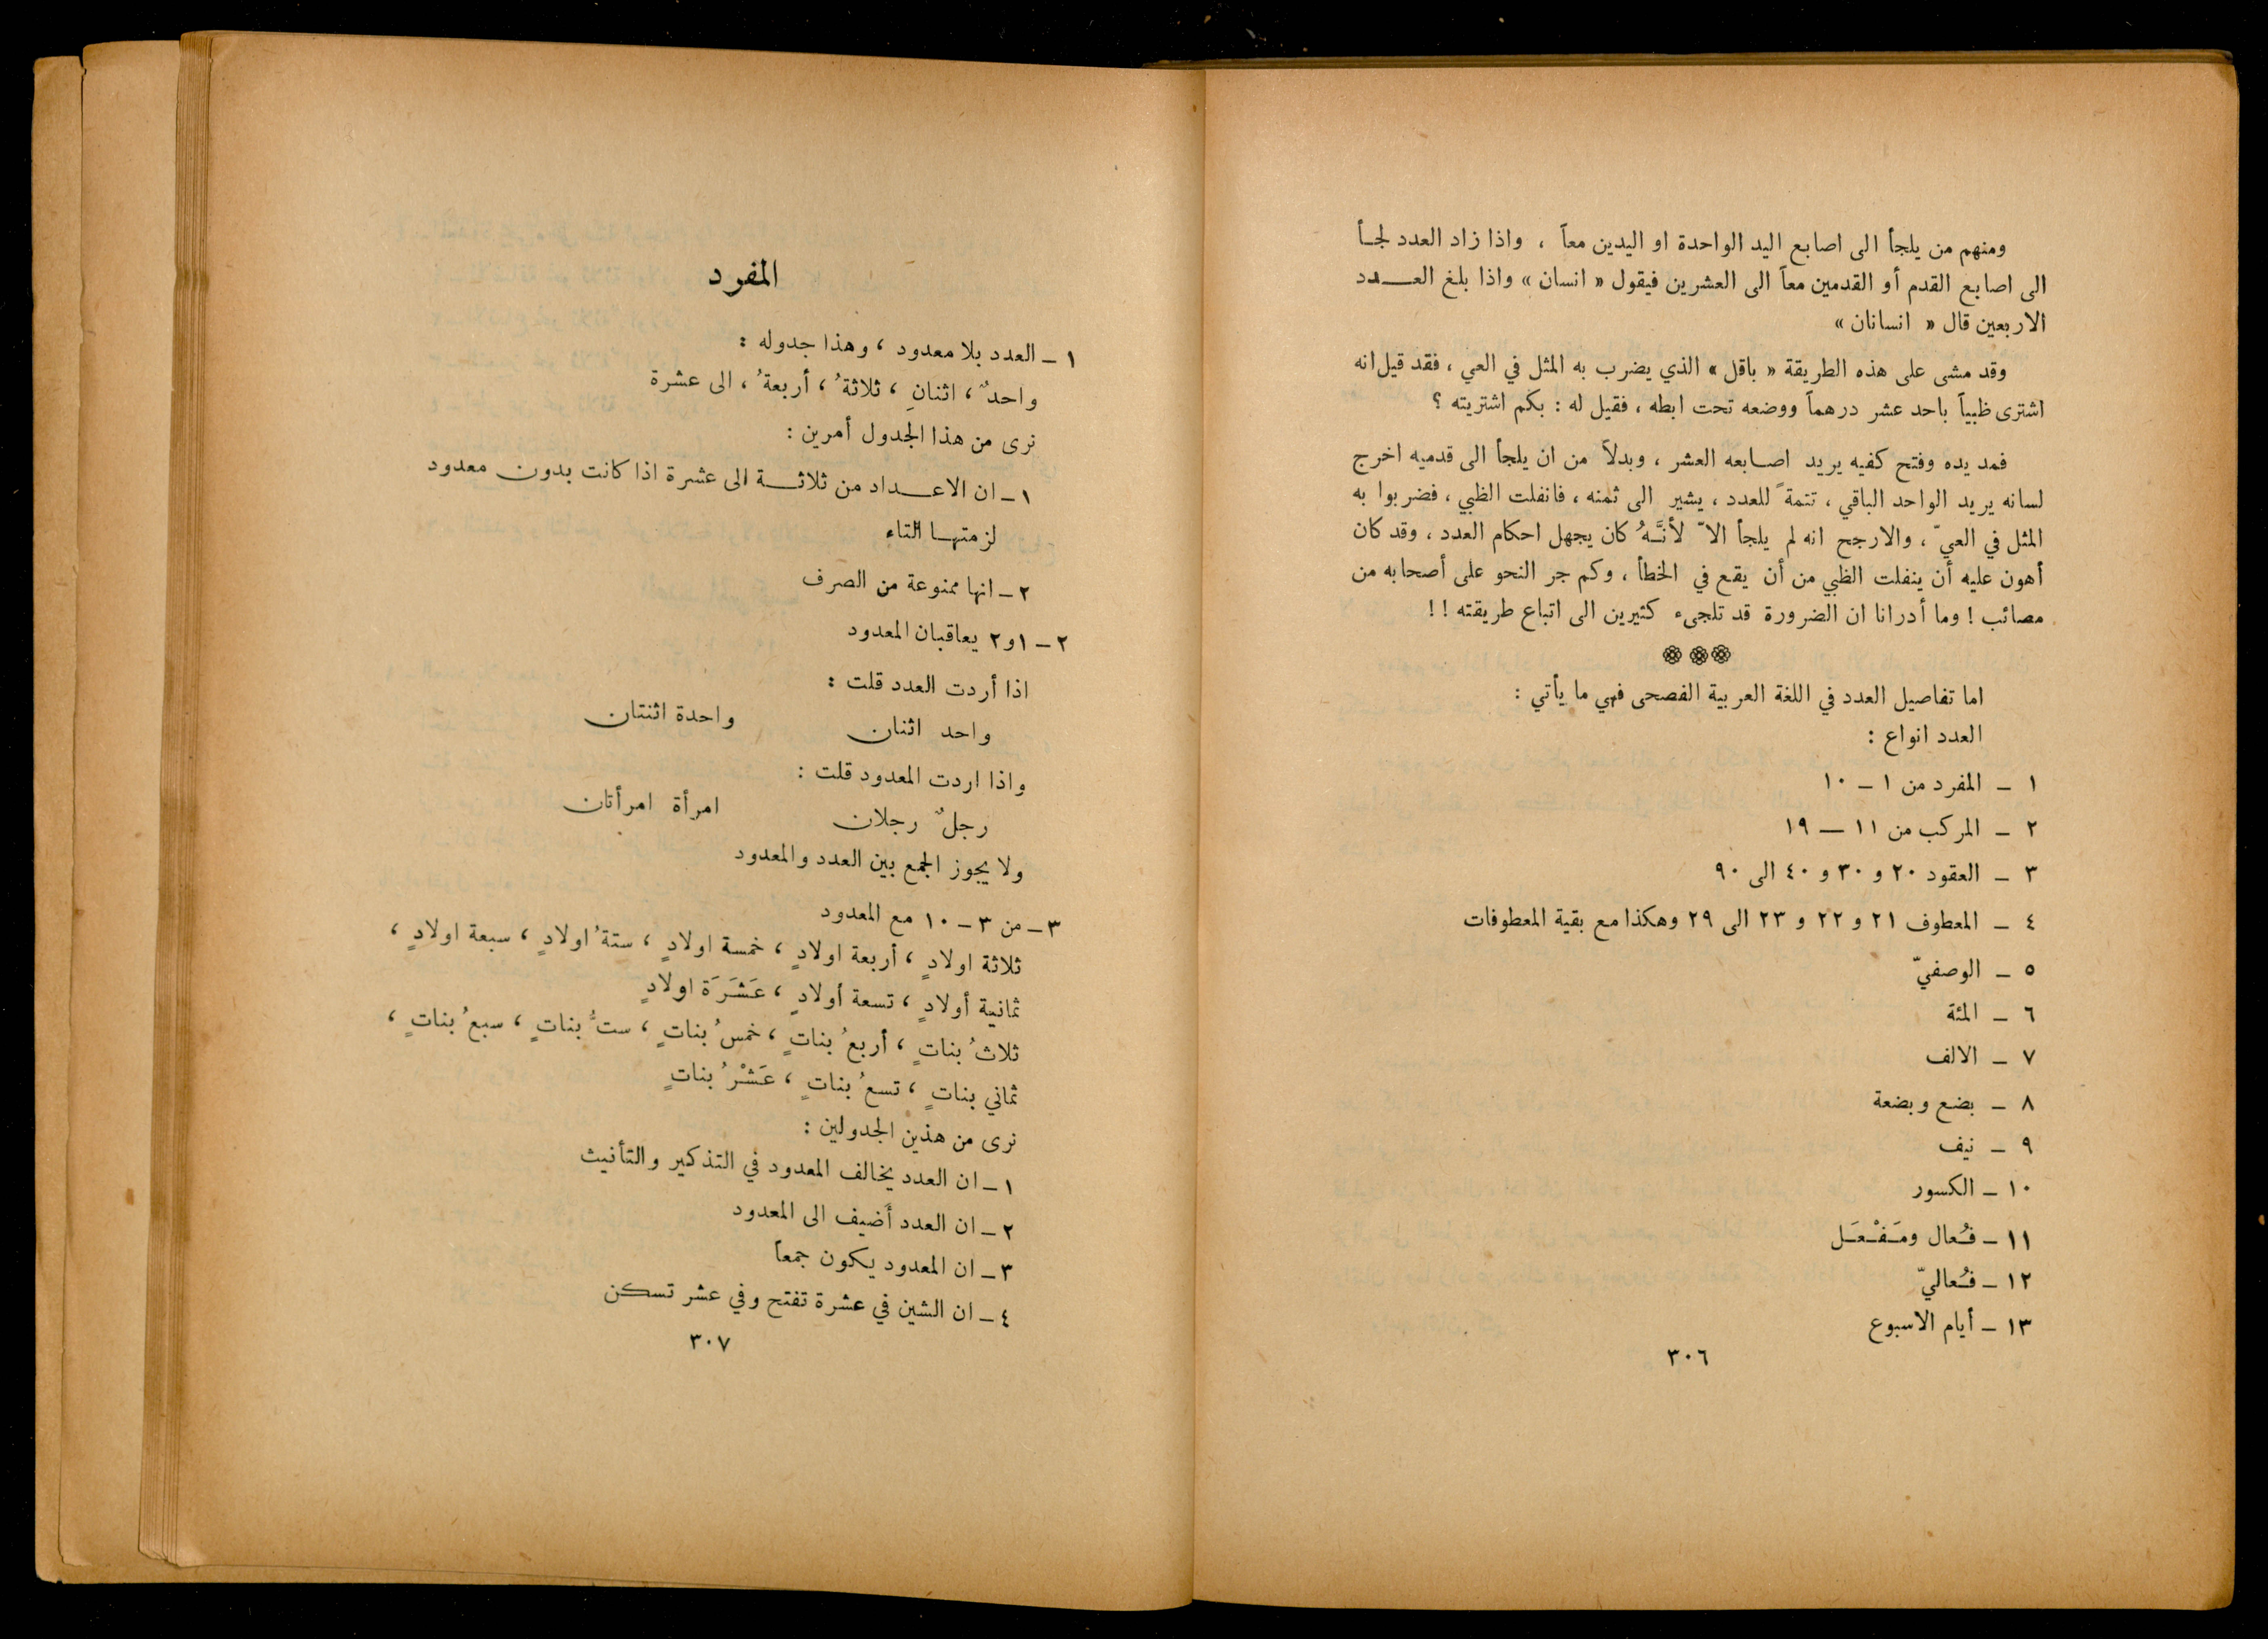 ومنهم من يلجأ الى اصابع اليد الواحدة او اليدين معاً ، واذا زاد العدد لجأ
الى اصابع القدم أو القدمين معاً الى العشرين فيقول « انسان » واذا بلغ العدد
الاربعين قال « انسانان »
وقد مشى على هذه الطريقة « باقل » الذي يضرب به المثل في العي ، فقد قيل انه
اشترى ظبياً باحد عشر درهماً ووضعه تحت ابطه ، فقيل له : بكم اشتريته ؟
فمد يده وفتح كفيه يريد اصابعه العشر ، وبدلاً من ان يلجأ الى قدميه اخرج
لسانه يريد الواحد الباقي ، تتمةً للعدد ، يشير الى ثمنه ، فانفلت الظبي ، فضربوا به
المثل في العيّ ، والارجح انه لم يلجأ الاّ لأنَّهُ كان يجهل احكام العدد ، وقد كان
أهون عليه أن ينفلت الظبي من أن يقع في الخطأ ، وكم جر النحو على أصحابه من
مصائب ! وما أدرانا ان الضرورة قد تلجىء كثيرين الى اتباع طريقته ! !
اما تفاصيل العدد في اللغة العربية الفصحى فهي ما يأتي :
العدد انواع :
١ – المفرد من ١ – ١٠
٢ – المركب من ١١ — ١٩
٣ – العقود ٢٠ و ٣٠ و ٤٠ الى ٩٠
٤ – المعطوف ٢١ و ٢٢ و ٢٣ الى ٢٩ وهكذا مع بقية المعطوفات
٥ – الوصفيّ
٦ – المئة
٧ – الالف
٨ – بضع وبضعة
٩ – نيف
١٠ – الكسور
١١ – فُعال ومَفْعَل
١٢ – فُعاليّ
١٣ – أيام الاسبوع
٣٠٦
المفرد
١ – العدد بلا معدود ، وهذا جدوله :
واحدٌ ، اثنانِ ، ثلاثةُ ، أربعةُ ، الى عشرة
نرى من هذا الجدول أمرين :
١ – ان الاعداد من ثلاثة الى عشرة اذا كانت بدون معدود
لزمتها التاء
٢ – انها ممنوعة من الصرف
٢ – ١ و٢ يعاقبان المعدود
اذا أردت العدد قلت :
واحد اثنان واحدة اثنتان
واذا اردت المعدود قلت :
رجلٌ رجلان امرأة امرأتان
ولا يجوز الجمع بين العدد والمعدود
٣ – من ٣ – ١٠ مع المعدود
ثلاثة اولادٍ ، أربعة اولادٍ ، خمسة اولادٍ ، ستةُ اولادٍ ، سبعة اولادٍ ،
ثمانية أولادٍ ، تسعة أولادٍ ، عَشَرَة اولادٍ
ثلاثُ بناتٍ ، أربعُ بناتٍ ، خمسُ بناتٍ ، ستُّ بناتٍ ، سبعُ بناتٍ ،
ثماني بناتٍ ، تسعُ بناتٍ ، عَشْرُ بناتٍ
نرى من هذين الجدولين :
١ – ان العدد يخالف المعدود في التذكير والتأنيث
٢ – ان العدد أضيف الى المعدود
٣ – ان المعدود يكون جمعاً
٤ – ان الشين في عشرة تفتح وفي عشر تسكن
٣٠٧